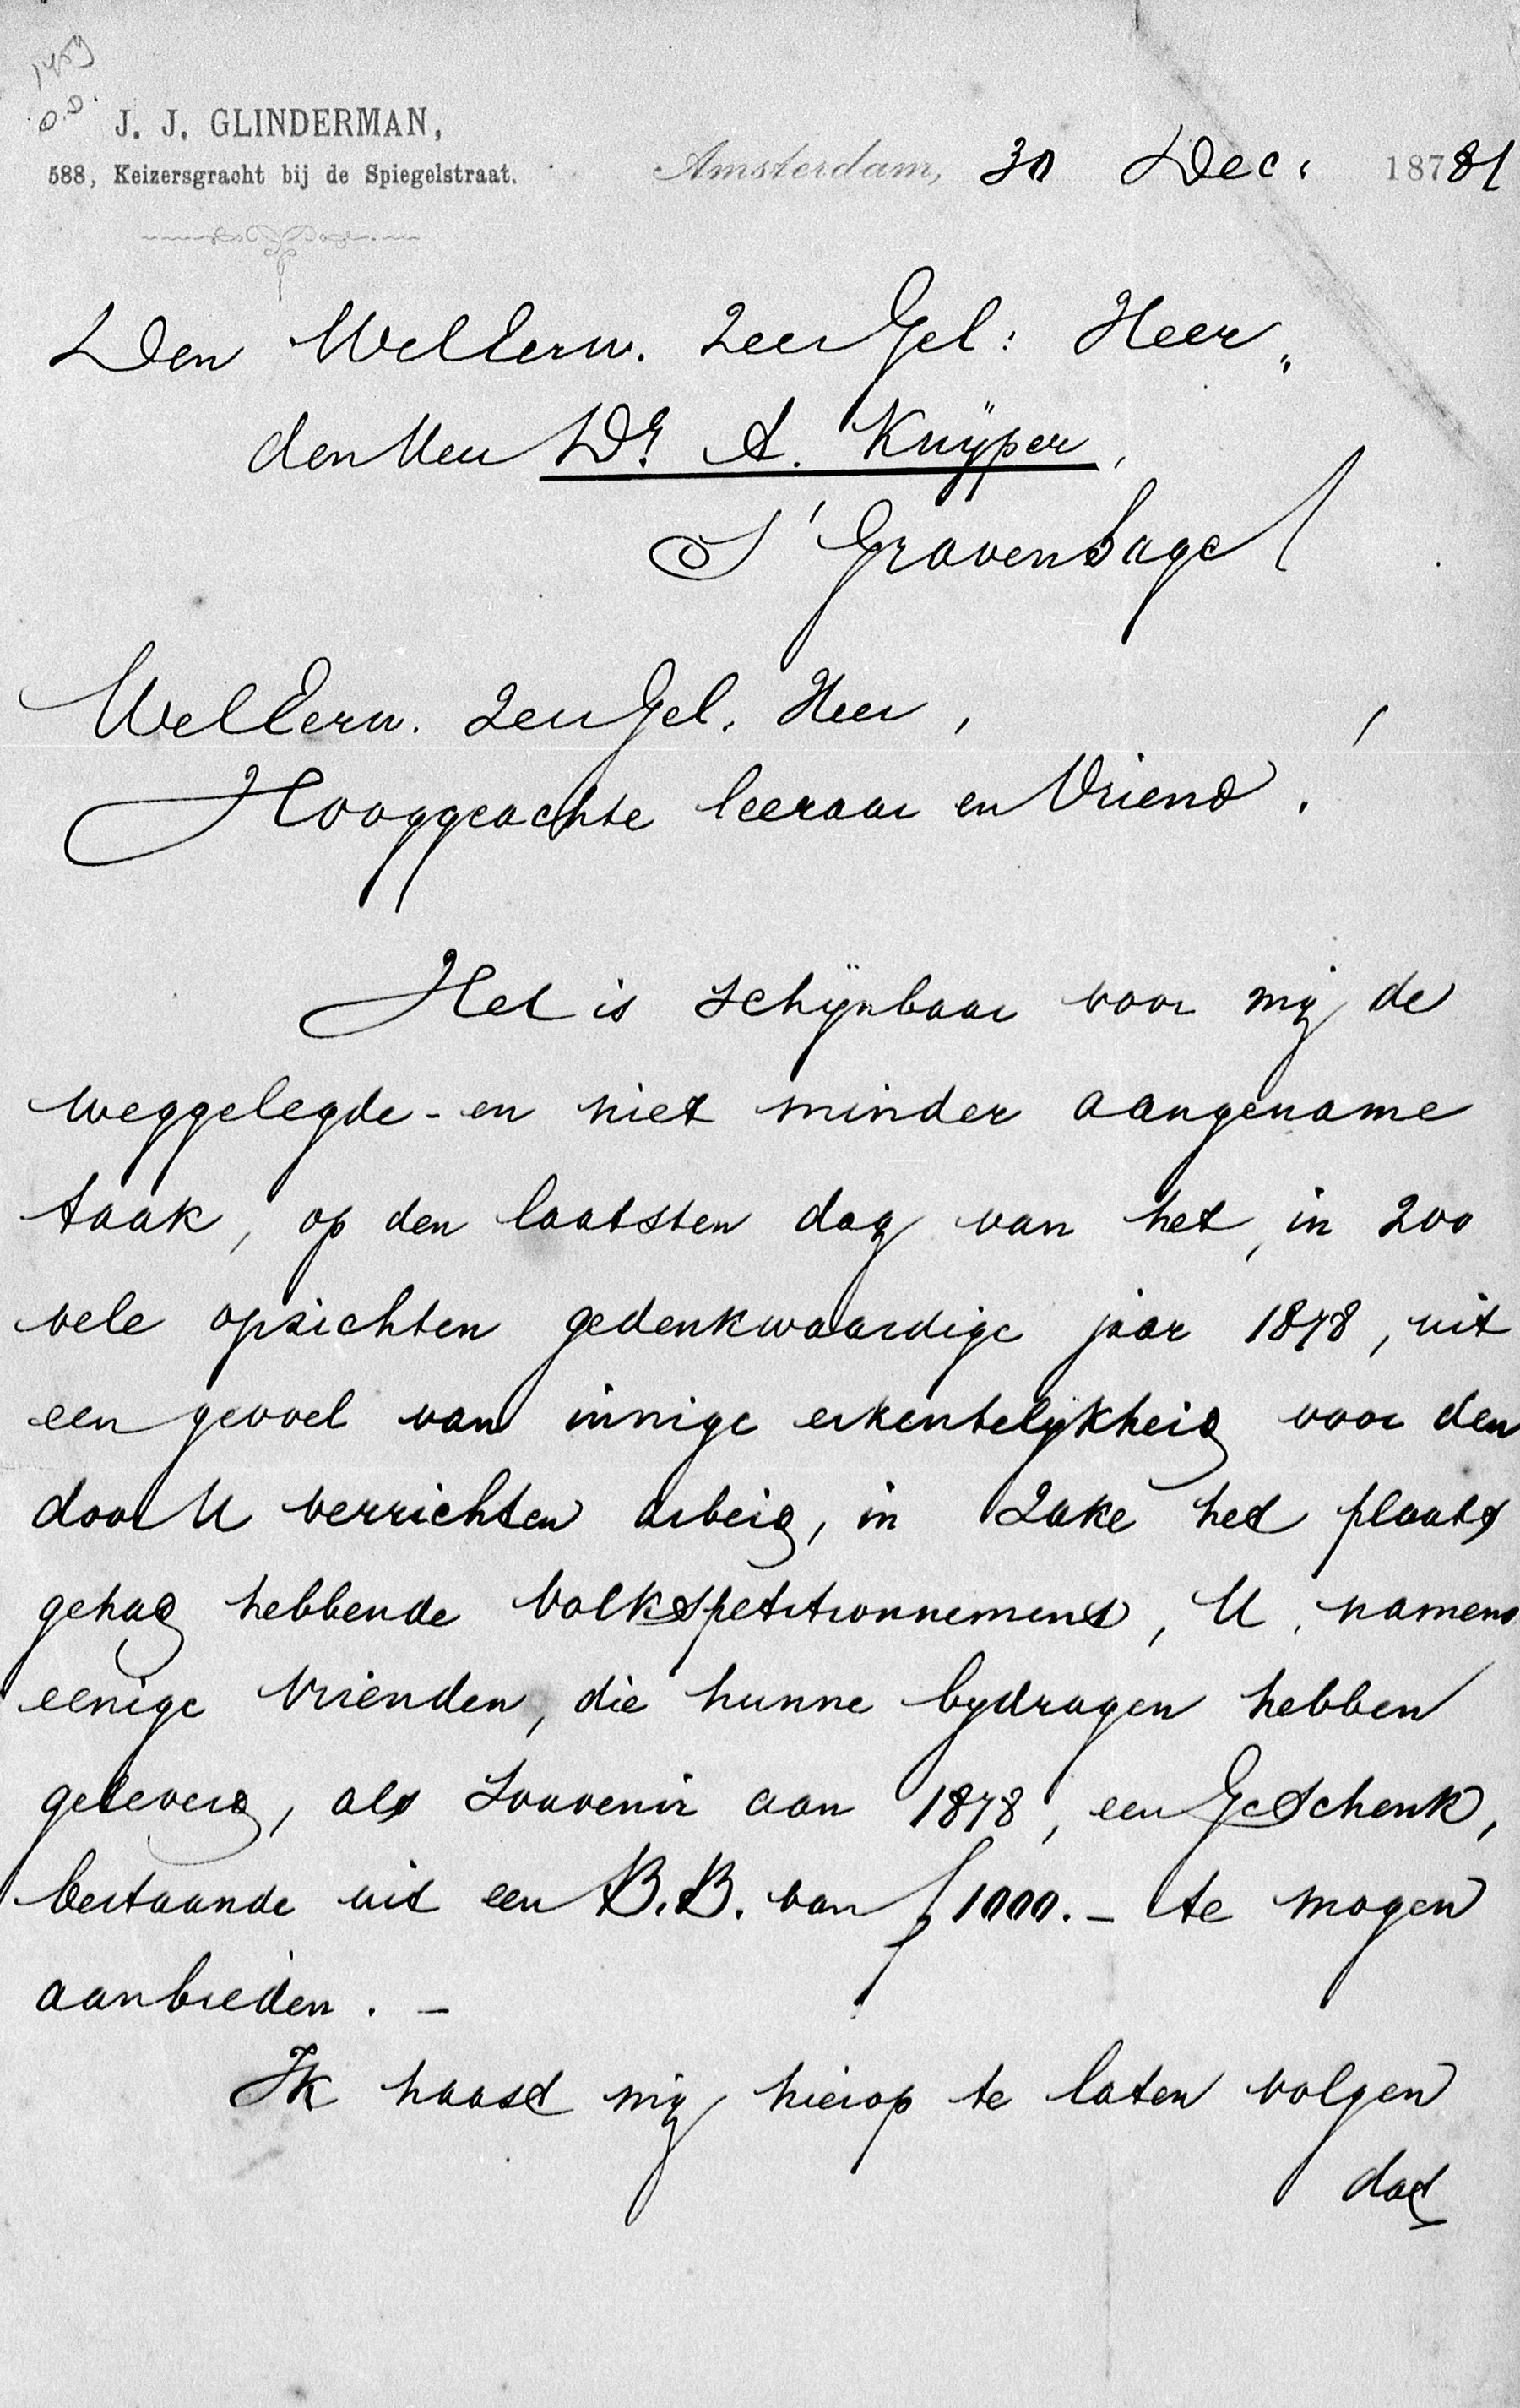 1459
D.D.
J. J. GLINDERMAN,
588, Keizersgracht bij de Spiegelstraat.
Amsterdam, 30 Dec. 187881
Den WelEerw. ZeerGel: Heer,
den Heer Dr. A. Kuÿper,
S'Gravenhage
WelEerw. ZeerGel. Heer,
Hooggeachte leeraar en Vriend!
Het is schÿnbaar voor mij de
weggelegde - en niet minder aangename
taak, op den laatsten dag van het, in zoo
vele opzichten gedenkwaardige jaar 1878, uit
een gevoel van innige erkentelÿkheid voor den
door U verrichten arbeid, in zake het plaats
gehad hebbende Volkspetitionnement, U, namens
eenige Vrienden, die hunne bydragen hebben
geleverd, als Souvenir aan 1878, een Geschenk,
bestaande uit een B.B. van f 1000.- te mogen
aanbieden. -
Ik haast mij hierop te laten volgen
dat